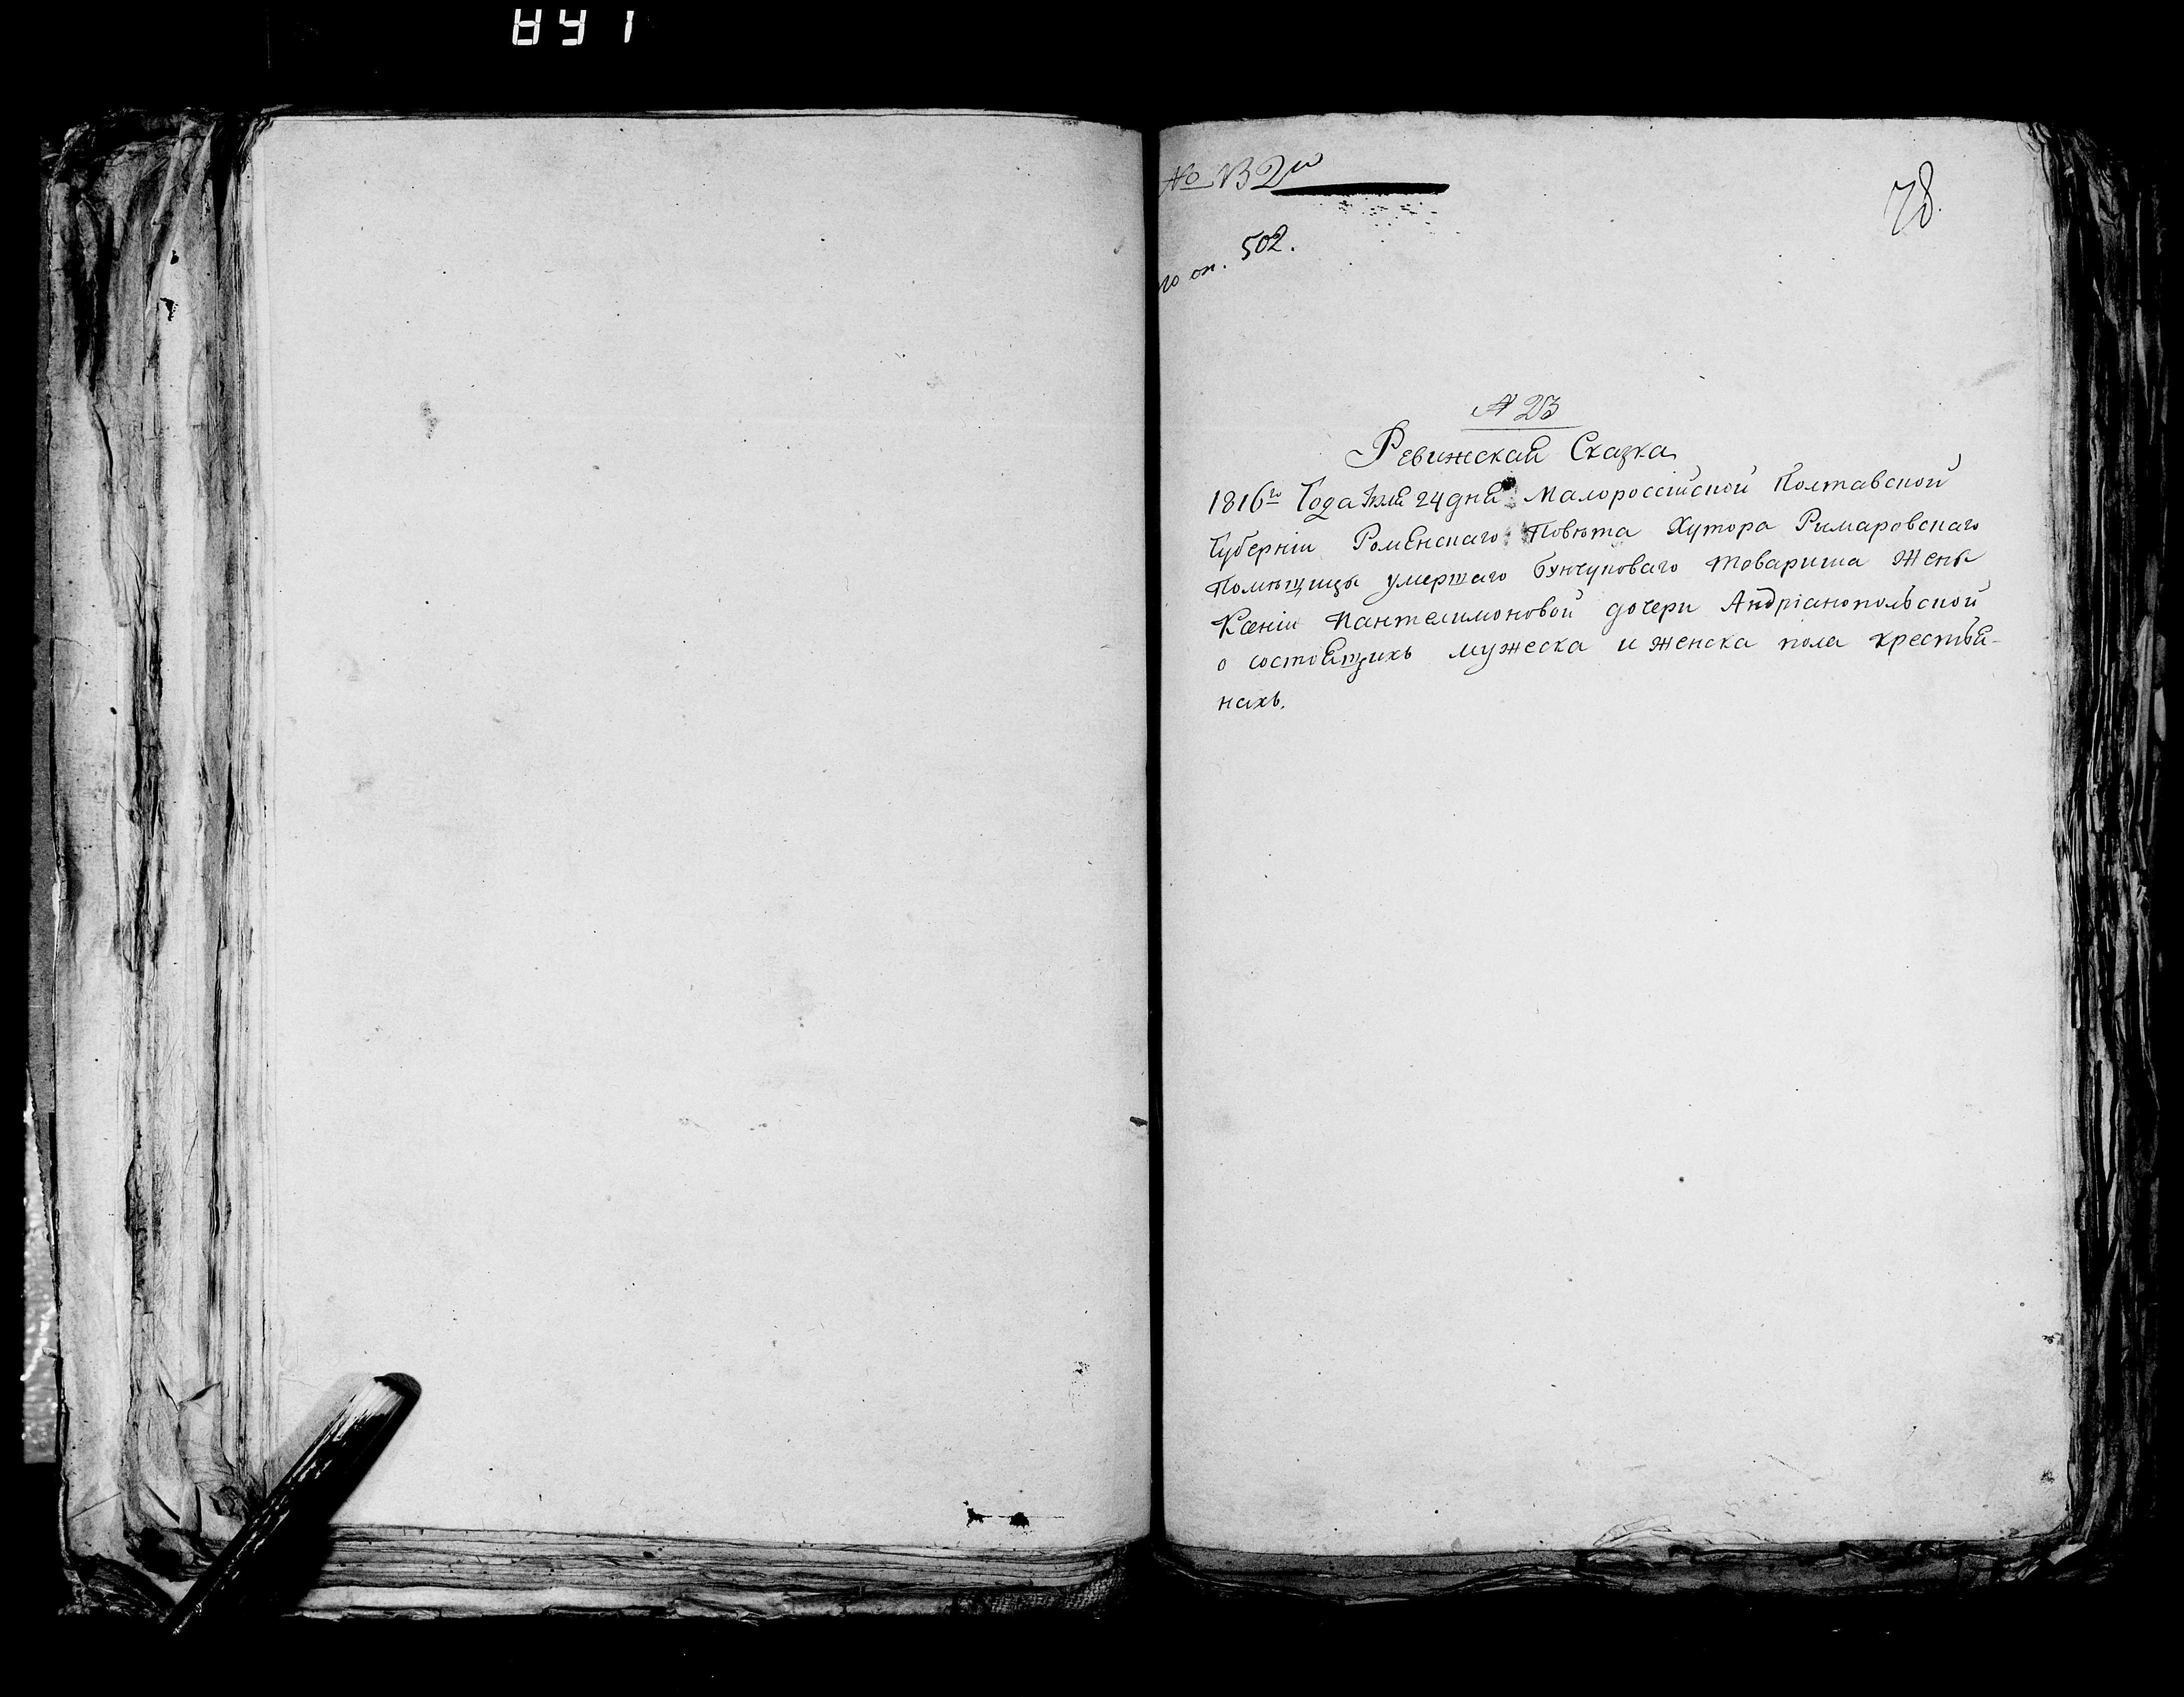 78.
по оп. 502.
№ 23
Ревижская Сказка
1816го Года Іюля 24 дня Малороссійской Полтавской
Губерніи Роменскаго Повѣта Хутора Римаровскаго
Помѣщицы умершаго бунчуковаго товариша Жены
Ксеніи Пантелимоновой дочери Андріанопольской
о состоящихъ мужеска и женска пола крестья-
нахъ.